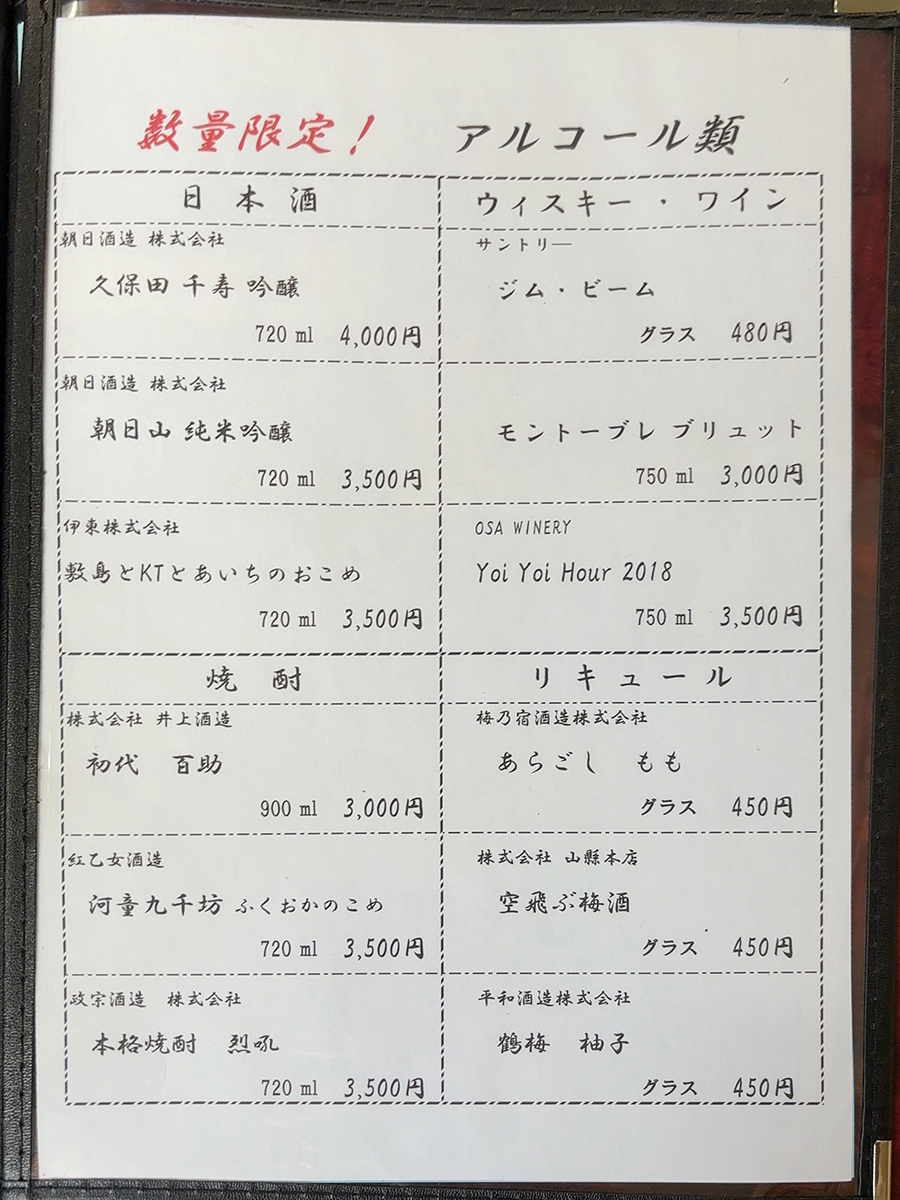 数量限定！ アルコール類
日本酒
朝日酒造 株式会社
久保田 千寿 吟醸
720 ml 4,000円
朝日酒造 株式会社
朝日山 純米吟醸
720 ml 3,500円
伊東株式会社
敷島とKTとあいちのおこめ
720 ml 3,500円
ウィスキー・ワイン
サントリー
ジム・ビーム
グラス 480円
モントーブレ ブリュット
750 ml 3,000円
OSA WINERY
Yoi Yoi Hour 2018
750 ml 3,500円
焼酎
株式会社 井上酒造
初代 百助
900 ml 3,000円
紅乙女酒造
河童九千坊 ふくおかのこめ
720 ml 3,500円
政宗酒造 株式会社
本格焼酎 烈吼
720 ml 3,500円
リキュール
梅乃宿酒造株式会社
あらごし もも
グラス 450円
株式会社 山縣本店
空飛ぶ梅酒
グラス 450円
平和酒造株式会社
鶴梅 柚子
グラス 450円